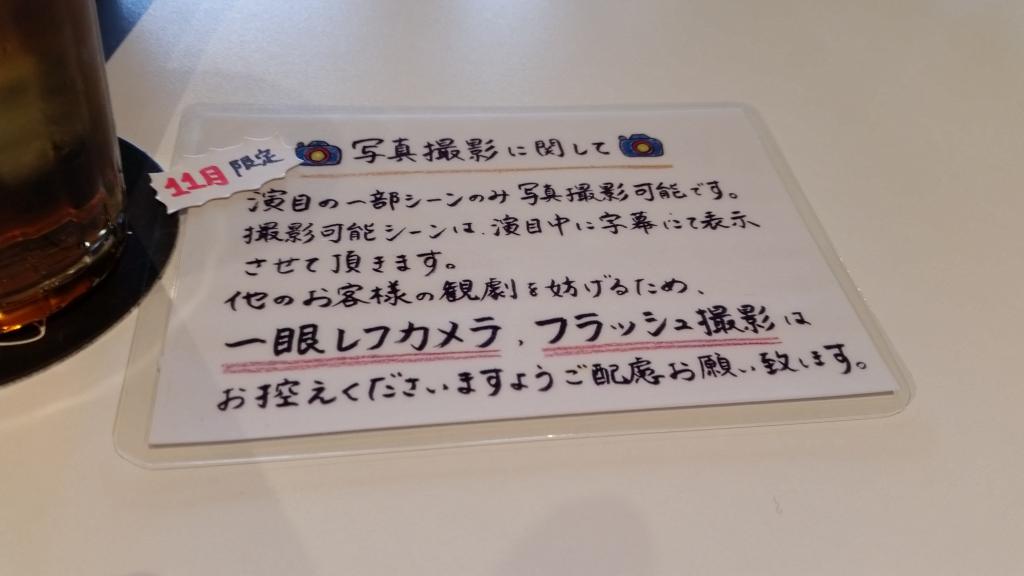 11月限定
写真撮影に関して
演目の一部シーンのみ写真撮影可能です。
撮影可能シーンは、演目中に字幕にて表示
させて頂きます。
他のお客様の観劇を妨げるため、
一眼レフカメラ、フラッシュ撮影は
お控えくださいますようご配慮お願い致します。